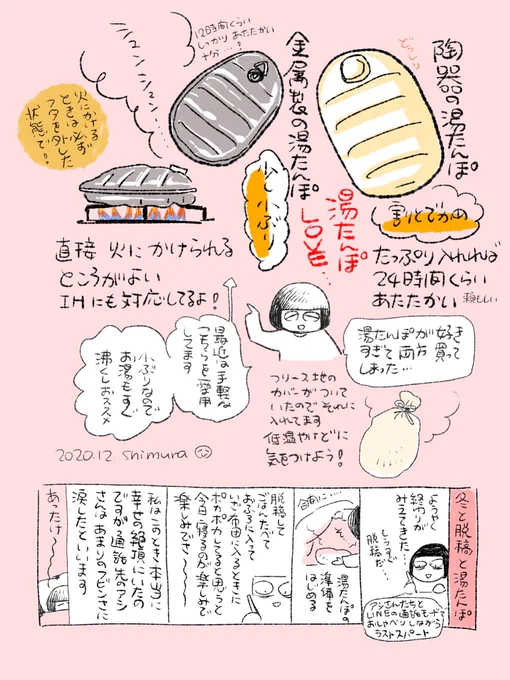 陶器の湯たんぽ
どっしり
割とでかめ
たっぷり入れれば
24時間くらい
あたたかい
頼もしい
湯たんぽ
LOVE…
金属製の湯たんぽ
小ぶり
12時間くらい
しっかり あたたかい
十分…!
シュンシュン…
火にかける
ときは必ず
フタを外した
状態で!
直接 火に かけられる
ところがよい
IHにも対応してるよ!
湯たんぽが好き
すぎて両方買って
しまった…
最近は手軽な
こっちを愛用
してます
小ぶりなので
お湯もすぐ
沸くしおススメ
フリース地の
カバーがついて
いたので それに
入れてます
低温やけどに
気をつけよう!
2020.12. shimura
冬と脱稿と湯たんぽ
ようやく
終わりが
みえてきた…
もうすぐ
脱稿だ…
アシさんたちと
LINEの通話モードで
おしゃべりしながら
ラストスパート
合間に…
湯たんぽの
準備を
はじめる
脱稿して
ごはんたべて
おふろに入って
いざ布団に入るときに
ポカポカしてると思うと
今日寝るのが楽しみで
楽しみでさ〜〜〜
私はこのとき本当に
幸せの絶頂にいたの
ですが通話先のアシ
さんはあまりのビンボさに
涙したといいます
あったけ〜〜